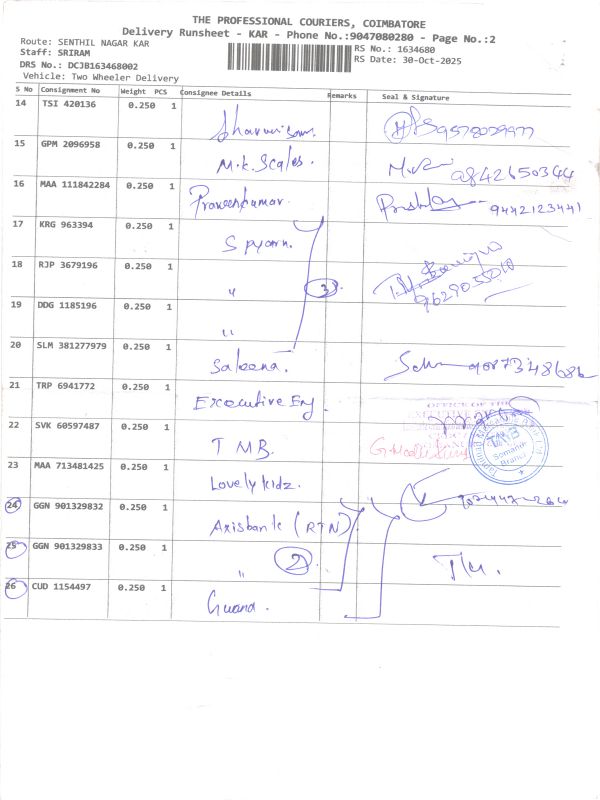 THE PROFESSIONAL COURIERS, COIMBATORE
Delivery Runsheet - KAR - Phone No.:9047080280 - Page No.:2
Route: SENTHIL NAGAR KAR
Staff: SRIRAM
RS No.: 1634680
DRS No.: DCJB163468002
RS Date: 30-Oct-2025
Vehicle: Two Wheeler Delivery
S No Consignment No Weight PCS Consignee Details Remarks Seal & Signature
14 TSI 420136 0.250 1
15 GPM 2096958 0.250 1 M.K. Scales. 9842650344
16 MAA 111842284 0.250 1 Praveenkumar 9442123441
17 KRG 963394 0.250 1
18 RJP 3679196 0.250 1 " 3
19 DDG 1185196 0.250 1 "
20 SLM 381277979 0.250 1 Sabeena. 9087348686
21 TRP 6941772 0.250 1 Executive Eng.
OFFICE OF THE
22 SVK 60597487 0.250 1 TMB. TMB
Somanur
Branch
23 MAA 713481425 0.250 1 Lovely kidz.
24 GGN 901329832 0.250 1 Axisbank (RTN)
25 GGN 901329833 0.250 1 " 2
26 CUD 1154497 0.250 1